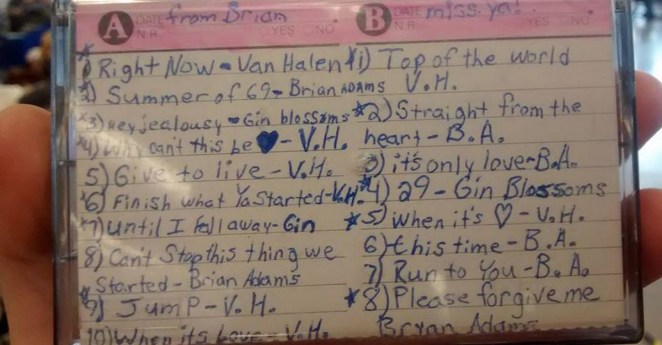 A DATE from Brian
N.R. YES NO
1) Right Now - Van Halen
2) Summer of 69 - Brian ADAMS
3) Hey jealousy - Gin blossoms
4) Why can't this be ♥ - V.H.
5) Give to live - V.H.
6) Finish what YaStarted - V.H.
7) until I fall away - Gin
8) Can't Stop this thing we
Started - Brian Adams
9) JumP - V.H.
10) When its Love - V.H.
B DATE miss ya!
N.R. YES NO
1) Top of the world
V.H.
2) Straight from the
heart - B.A.
3) it's only love - B.A.
4) 29 - Gin Blossoms
5) when it's ♡ - V.H.
6) this time - B.A.
7) Run to You - B.A.
8) Please forgive me
Bryan Adams